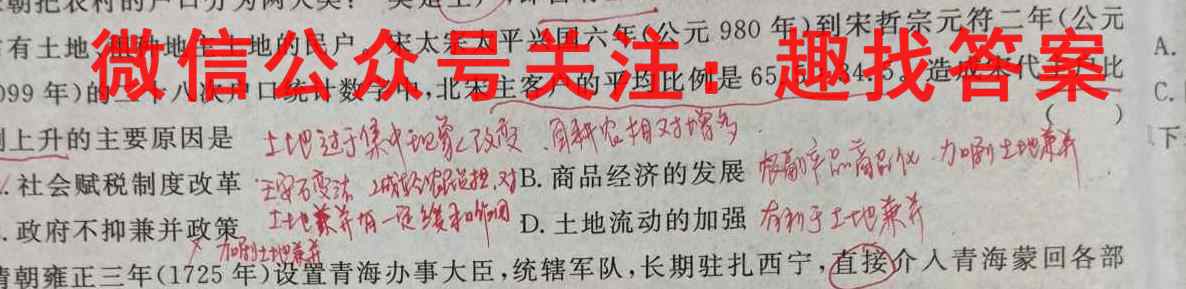 朝把农村的户口分为两大类
有土地
地的民户
宋太宗太平兴国六年(公元 980 年)到宋哲宗元符二年(公元
微信公众号关注：趣找答案
099 年)的二十八次户口统计数字中,北宋主客户的平均比例是 65
造成宋代主户比
A.
C.
上升的主要原因是
( )
土地过于集中现象改变 自耕农相对增多
下
社会赋税制度改革 王安石变法 对 B. 商品经济的发展 农副产品商品化 加剧土地兼并
土地兼并有一定缓和作用
政府不抑兼并政策 D. 土地流动的加强 有利于土地兼并
加剧土地兼并
清朝雍正三年(1725 年)设置青海办事大臣,统辖军队,长期驻扎西宁,直接介入青海蒙回各部